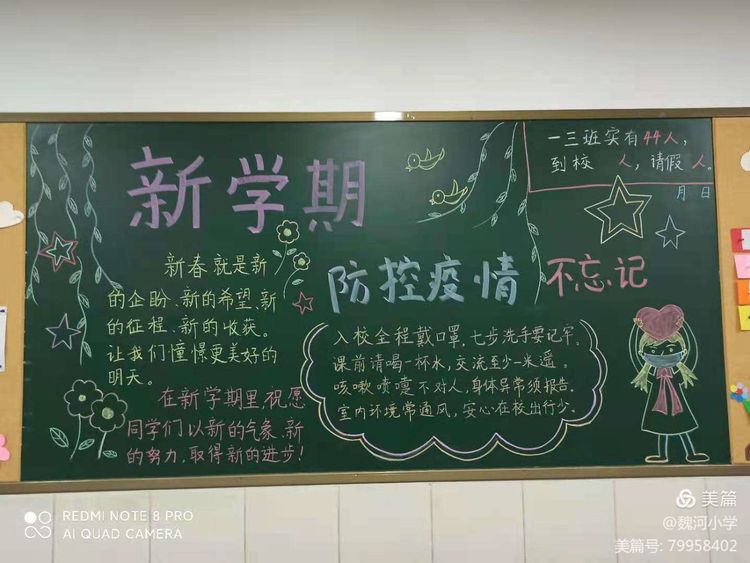 新学期
一三班实有44人，
到校 人，请假 人。
月 日
新春就是新
的企盼、新的希望、新
的征程、新的收获。
让我们憧憬更美好的
明天。
在新学期里，祝愿
同学们以新的气象、新
的努力，取得新的进步！
防控疫情 不忘记
入校全程戴口罩，七步洗手要记牢，
课前请喝一杯水，交流至少一米遥。
咳嗽喷嚏不对人，身体异常须报告。
室内环境常通风，安心在校出行少。
REDMI NOTE 8 PRO
AI QUAD CAMERA
美篇
@魏河小学
美篇号: 79958402